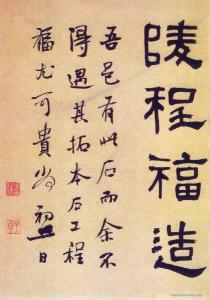 陵程福造
吾邑有此石而余不
得遇其拓本石工程
福尤可貴尚日